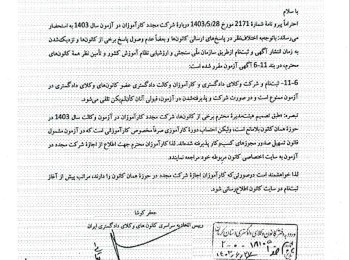 با سلام
احتراماً پیرو نامهٔ شمارهٔ 2171 مورخ 1403/5/28 دربارهٔ شرکت مجدد کارآموزان در آزمون سال 1403 به استحضار
می‌رساند: باتوجه به اختلاف‌نظر در پاسخ‌های ارسالی کانون‌ها و بعضاً عدم وصول پاسخ برخی از کانون‌ها و نزدیک‌شدن
به زمان انتشار آگهی و ثبت‌نام ازطریق سازمان ملّی سنجش و ارزشیابی نظام آموزش کشور و تأمین نظر همهٔ کانون‌های
محترم، در بند 11-6 آگهی آزمون مقرر شده است:
6-11- ثبت‌نام و شرکت وکلای دادگستری و کارآموزان وکالت دادگستری عضو کانون‌های وکلای دادگستری در
آزمون ممنوع است و در صورت شرکت و پذیرفته‌شدن در آزمون، قبولی آنان کأن‌لم‌یکن تلقی می‌شود.
تبصره: طبق تصمیم هیئت‌مدیرهٔ محترم برخی از کانون‌ها، شرکت مجدد کارآموزان در آزمون وکالت سال 1403 در
حوزهٔ همان کانون بلامانع است؛ ولیکن احتساب دورهٔ کارآموزی صرفاً مخصوص کارآموزانی است که در آزمون مشمول
قانون تسهیل صدور مجوزهای کسب‌وکار پذیرفته شده‌اند. لذا کارآموزان محترم جهت اطلاع از اجازهٔ شرکت مجدد در
آزمون به سایت اختصاصی کانون مربوطه خود مراجعه نمایند.
لذا خواهشمند است درصورتی‌که کارآموزان اجازهٔ شرکت مجدد در حوزهٔ همان کانون را دارند، مراتب پیش از آغاز
ثبت‌نام در سایت کانون اطلاع‌رسانی شود.
جعفر کوشا
رییس اتحادیه سراسری کانون های وکلای دادگستری ایران